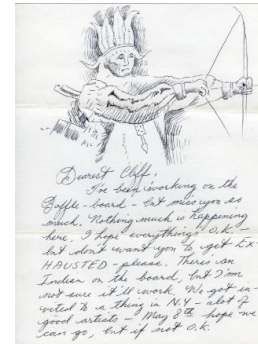 Dearest Cliff,
I've been working on the
Baffle-board - but miss you so
much. Nothing much is happening
here. I hope everything's O.K -
but don't want you to get Ex-
HAUSTED - please. There's an
Indian on the board, but I'm
not sure it'll work. We got in-
vited to a thing in N.Y - alot of
good artists - May 8th hope we
can go, but if not O.K.